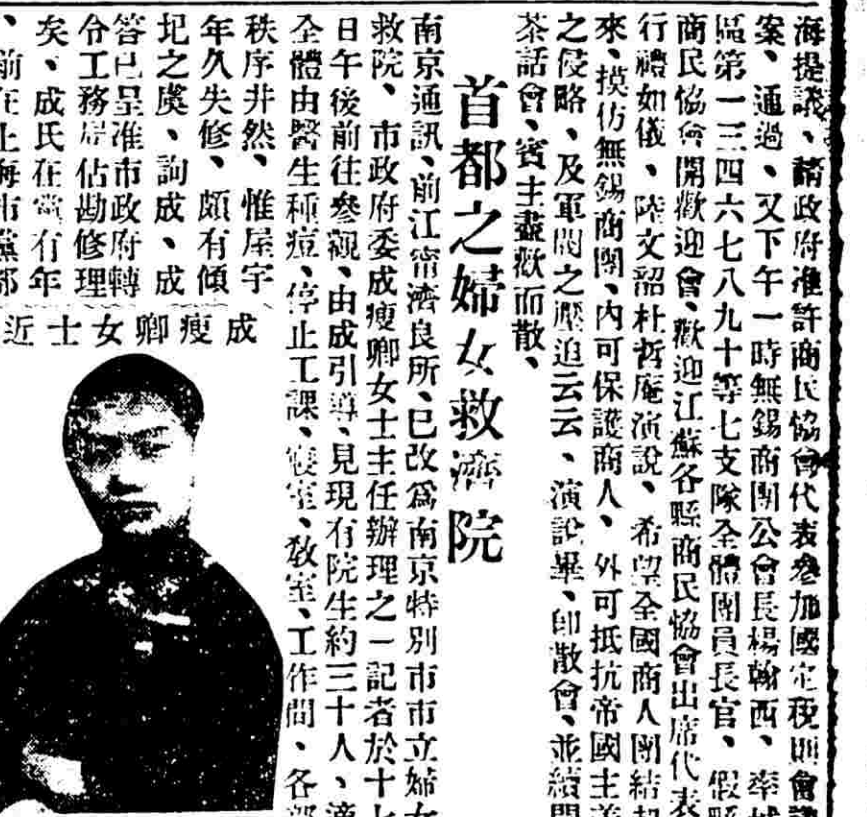 海提議、請政府准許商民協會代表參加國定稅則會議
案、通過、又下午一時無錫商團公會長楊翰西、率城
區第一三四六七八九十等七支隊全體團員長官、假縣
商民協會開歡迎會、歡迎江蘇各縣商民協會出席代表
行禮如儀、陸文韶杜哲庵演說、希望全國商人團結起
來、摸仿無錫商團、內可保護商人、外可抵抗帝國主義
之侵略、及軍閥之壓迫云云、演說畢、即散會、並續開
茶話會、賓主盡歡而散、
首都之婦女救濟院
南京通訊、前江甯濟良所、已改爲南京特別市市立婦女
救院、市政府委成瘦卿女士主任辦理之一記者於十七
日午後前往參觀、由成引導、見現有院生約三十人、適
全體由醫生種痘、停止工課、寢室、敎室、工作間、各部
秩序井然、惟屋宇
年久失修、頗有傾
圮之虞、詢成、成
答已呈准市政府轉
令工務局估勘修理
矣、成氏在黨有年
、前在上海市黨部
成瘦卿女士近